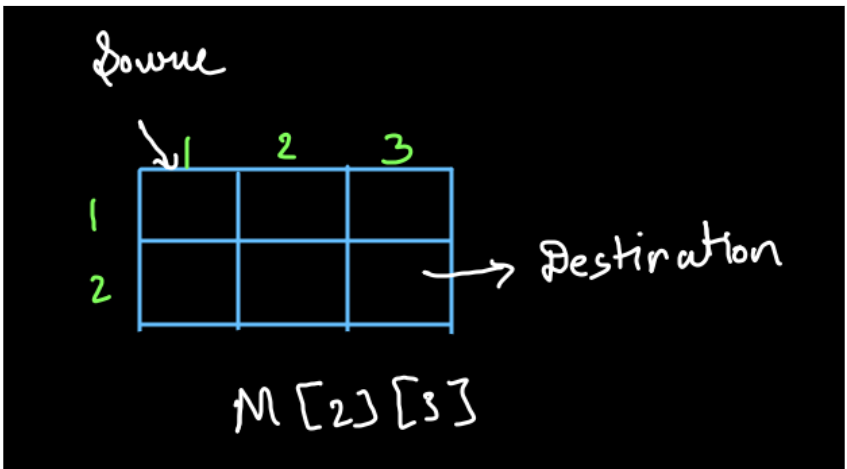 Source
1 2 3
1
2
Destination
M[2][3]